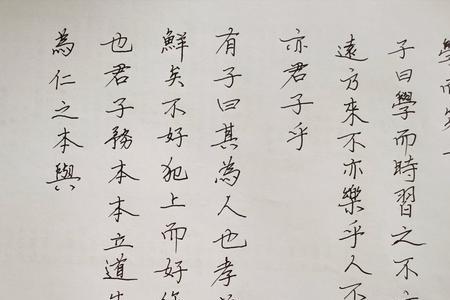 學而第一
子曰學而時習之不亦
遠方來不亦樂乎人不
亦君子乎
有子曰其為人也孝
鮮矣不好犯上而好作
也君子務本本立道生
為仁之本與